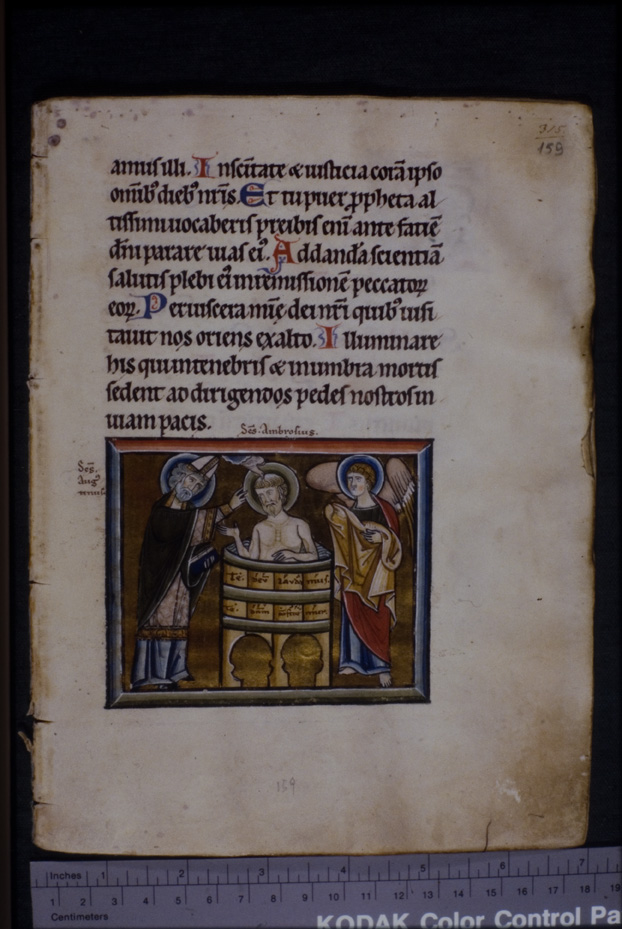 315
159
annus illi. In sc̃itate & iusticia corã ipso
om̃ib; dieb; nr̃is. Et tu puer ꝓpheta al
tissimi uocaberis preibis eni ̃ante faciẽ
dñi parare uias ei᾽. Ad dandã scientiã
salutis plebi ei᾽ in remissionẽ peccatoꝝ
eoꝝ. Per uiscera mi̅e dei nr̃i quib; uisi
tauit nos oriens ex alto. Illuminare
his qui in tenebris & in umbra mortis
sedent ad dirigendos pedes nostros in
uiam pacis.
Sc̃s. Ambrosius.
Sc̃s.
Augꝰ
Te. dm̃ lauda mus.
Te. dñm
159
Inches 1 2 3 4 5 6 7
1 2 3 4 5 6 7 8 9 10 11 12 13 14 15 16 17 18 19
Centimeters
KODAK Color Control Pa